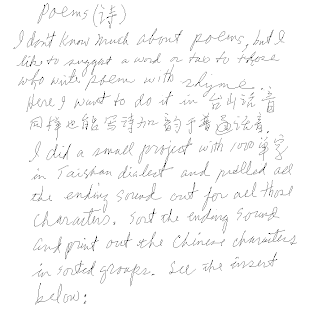 Poems (诗)
I don't know much about poems, but I
like to suggest a word or two to those
who write poem with rhyme.
Here I want to do it in 台山话音
同样也能写诗加韵于普通话音.
I did a small project with 1000 单字
in Taishan dialect and pulled all
the ending sound out for all those
characters. Sort the ending sound
and print out the Chinese characters
in sorted groups. See the insert
below: